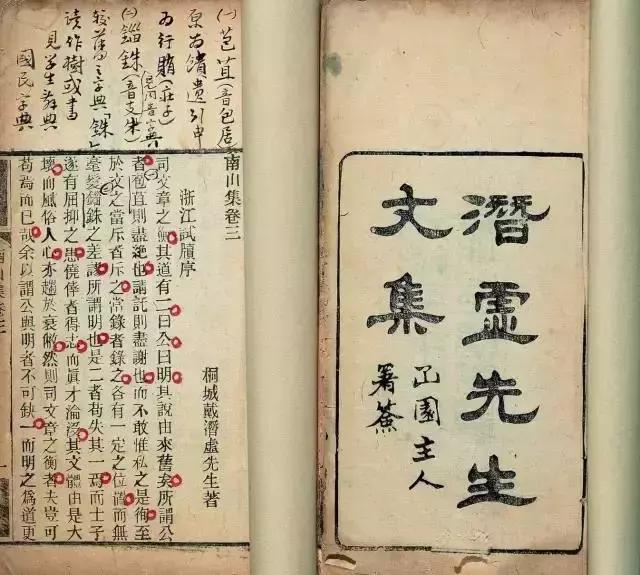 潛虛先生
文集
園主人
署簽
(一)苞苴(音包居)
原为饋遗引申
为行賄(莊子)
(二)錙銖(音支朱)
較舊之字典「銖」
读作樹或書
見学生辞典
國民字典
南山集卷三
桐城戴潛虛先生著
浙江試牘序
司文章之衡其道有二曰公曰明其說由來舊矣所謂公
者苞苴則盡絶也請託則盡謝也而不敢惟私之是徇至
於文之當斥者斥之當錄者錄之各有一定之位置而無
毫髮錙銖之差謬所謂明也是二者苟失其一焉而士子
遂有屈抑之患僥倖者得志而眞才淪沒其文體由是大
壞而風俗人心亦趨於衰敝然則司文章之衡者夫豈可
苟焉而已哉余以謂公與明者不可缺一而明之爲道更